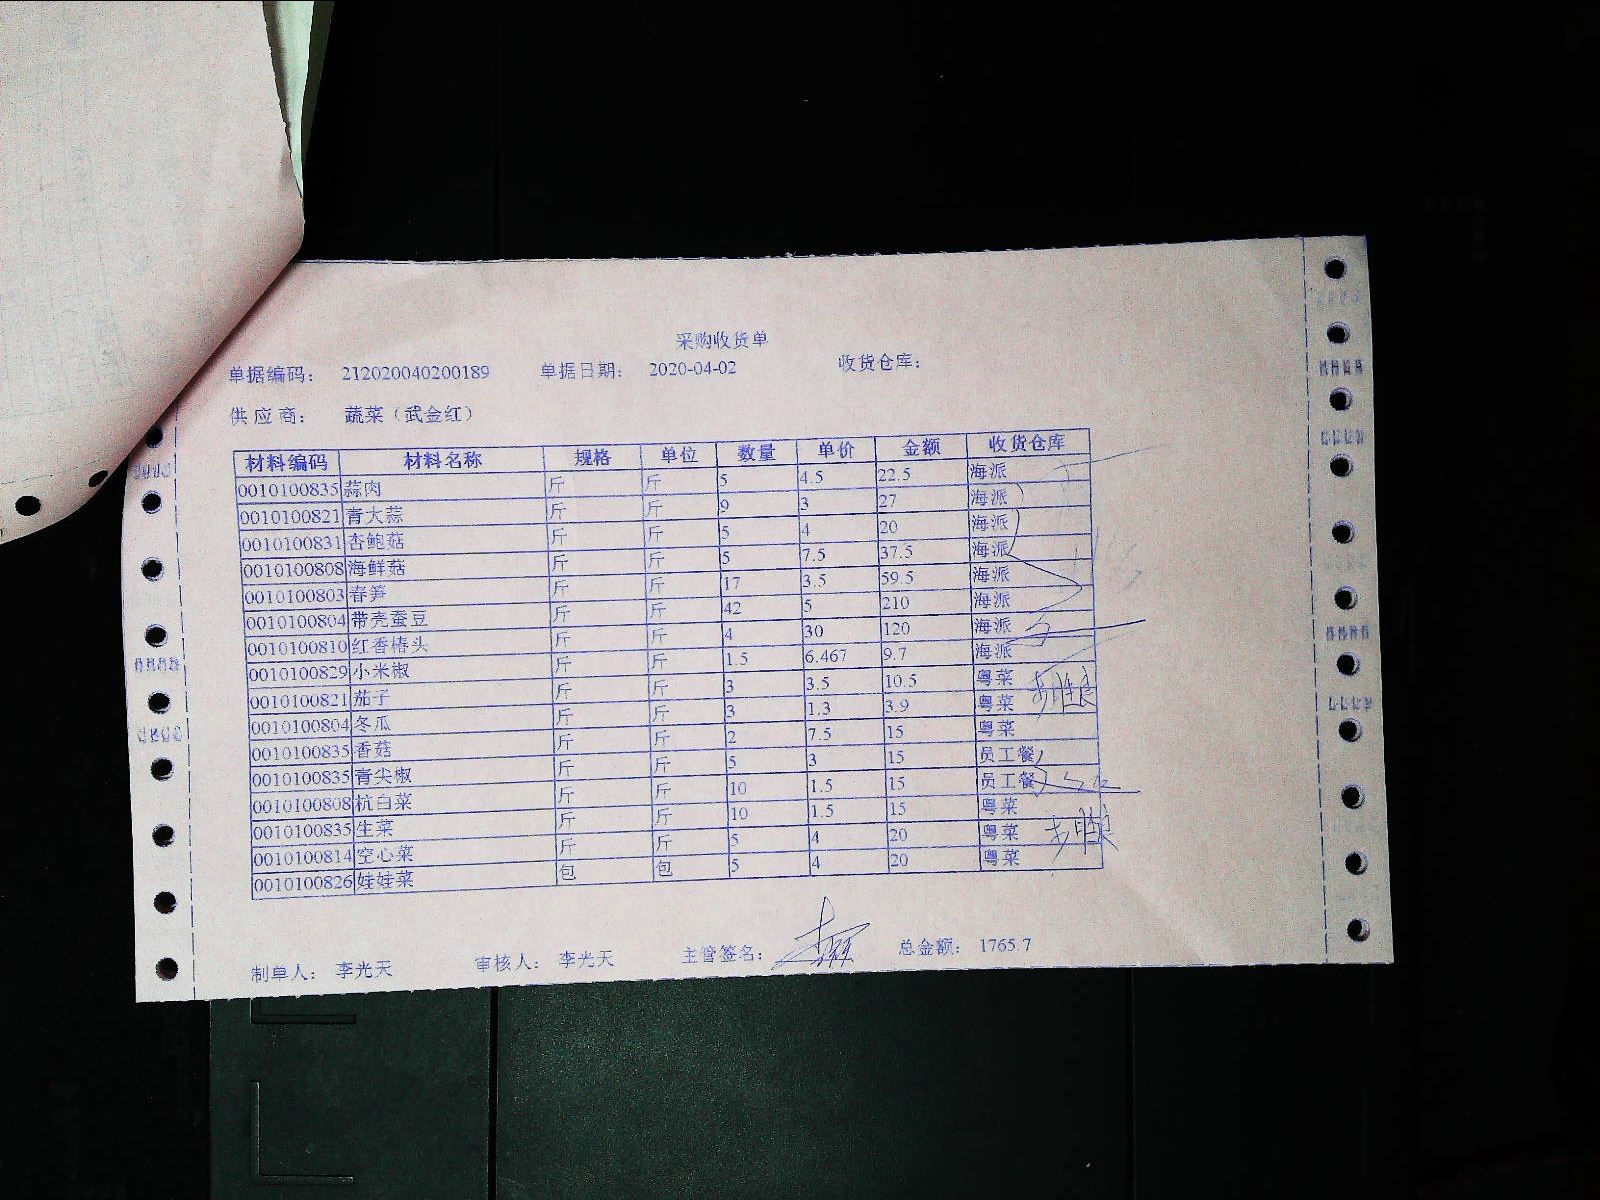 采购收货单
单据编码： 212020040200189 单据日期： 2020-04-02 收货仓库：
供应商： 蔬菜（武金红）
材料编码 材料名称 规格 单位 数量 单价 金额 收货仓库
0010100835 蒜肉 斤 斤 5 4.5 22.5 海派
0010100821 青大蒜 斤 斤 9 3 27 海派
0010100831 杏鲍菇 斤 斤 5 4 20 海派
0010100808 海鲜菇 斤 斤 5 7.5 37.5 海派
0010100803 春笋 斤 斤 17 3.5 59.5 海派
0010100804 带壳蚕豆 斤 斤 42 5 210 海派
0010100810 红香椿头 斤 斤 4 30 120 海派
0010100829 小米椒 斤 斤 1.5 6.467 9.7 海派
0010100821 茄子 斤 斤 3 3.5 10.5 粤菜
0010100804 冬瓜 斤 斤 3 1.3 3.9 粤菜
0010100835 香菇 斤 斤 2 7.5 15 粤菜
0010100835 青尖椒 斤 斤 5 3 15 员工餐
0010100808 杭白菜 斤 斤 10 1.5 15 员工餐
0010100835 生菜 斤 斤 10 1.5 15 粤菜
0010100814 空心菜 斤 斤 5 4 20 粤菜
0010100826 娃娃菜 包 包 5 4 20 粤菜
制单人： 李光天 审核人： 李光天 主管签名： 总金额： 1765.7